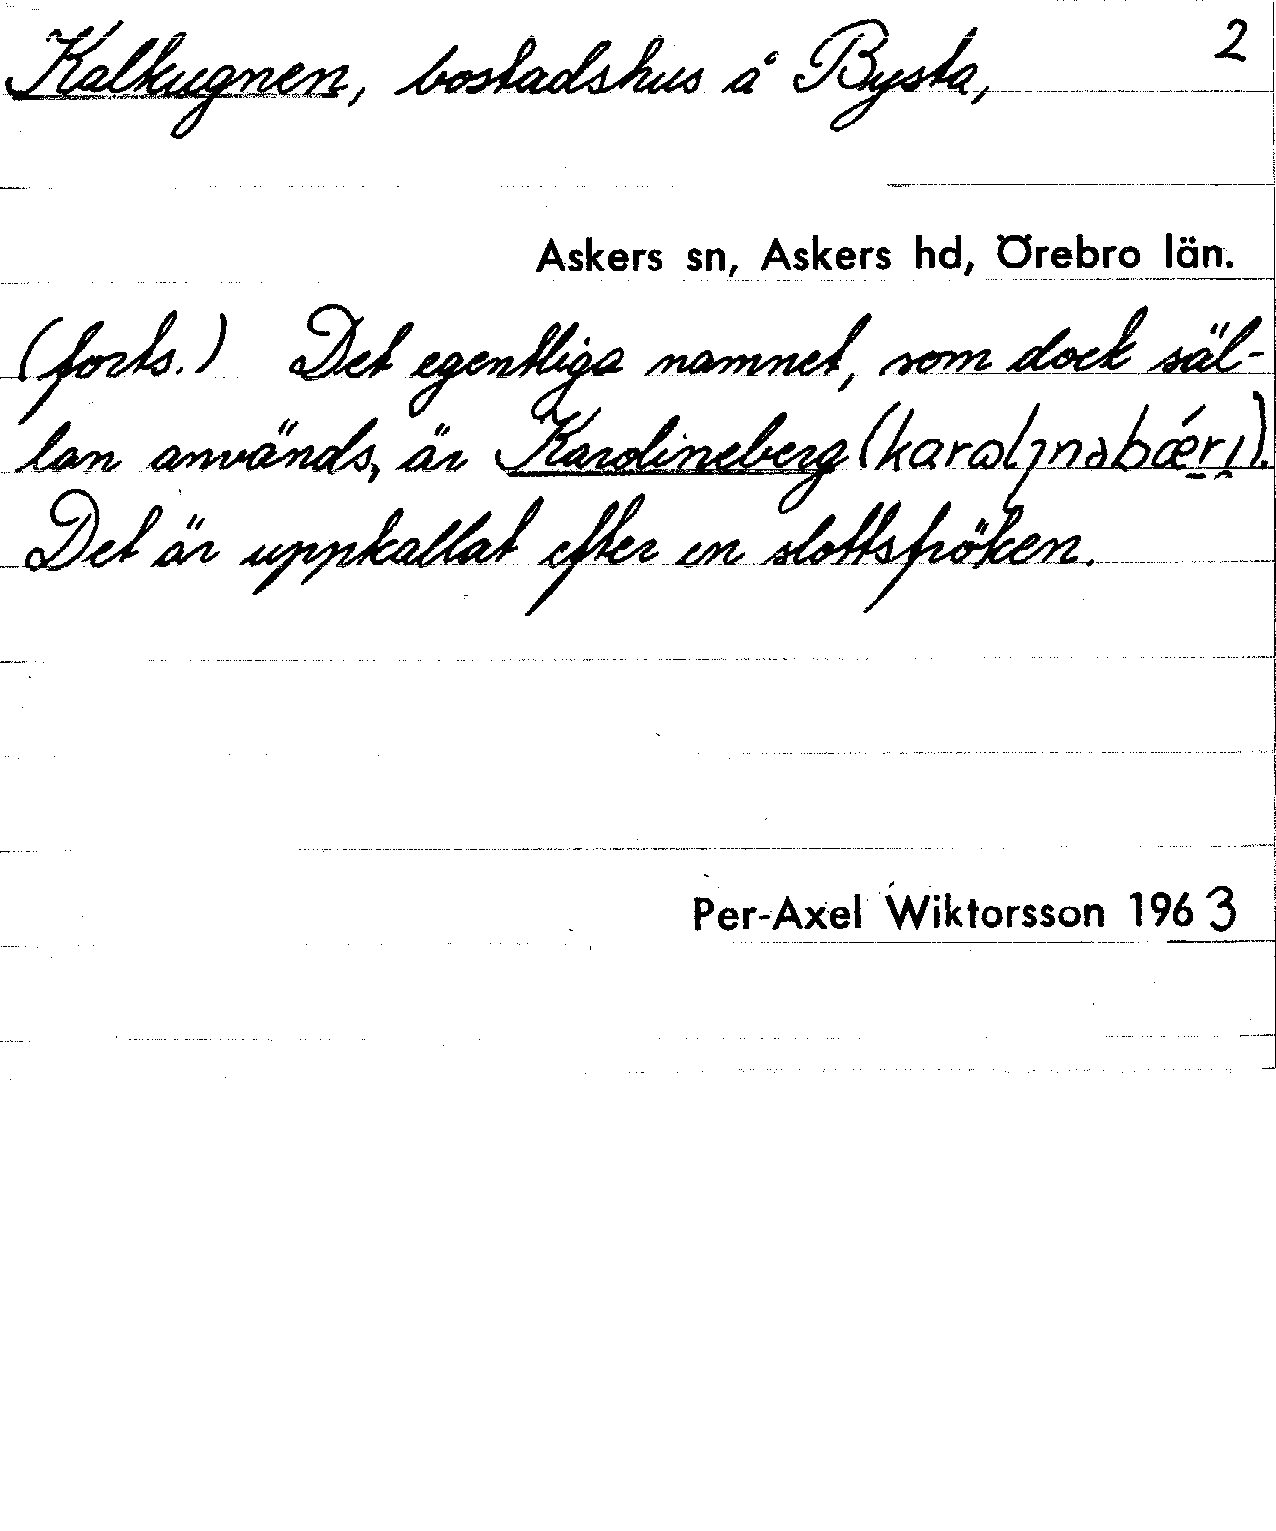 Kalkugnen, bostadshus å Bysta, 2
Askers sn, Askers hd, Örebro län.
(forts.) Det egentliga namnet, som dock säl-
lan används, är Karolineberg (karaլınəbǽrı).
Det är uppkallat efter en slottsfröken.
Per-Axel Wiktorsson 1963